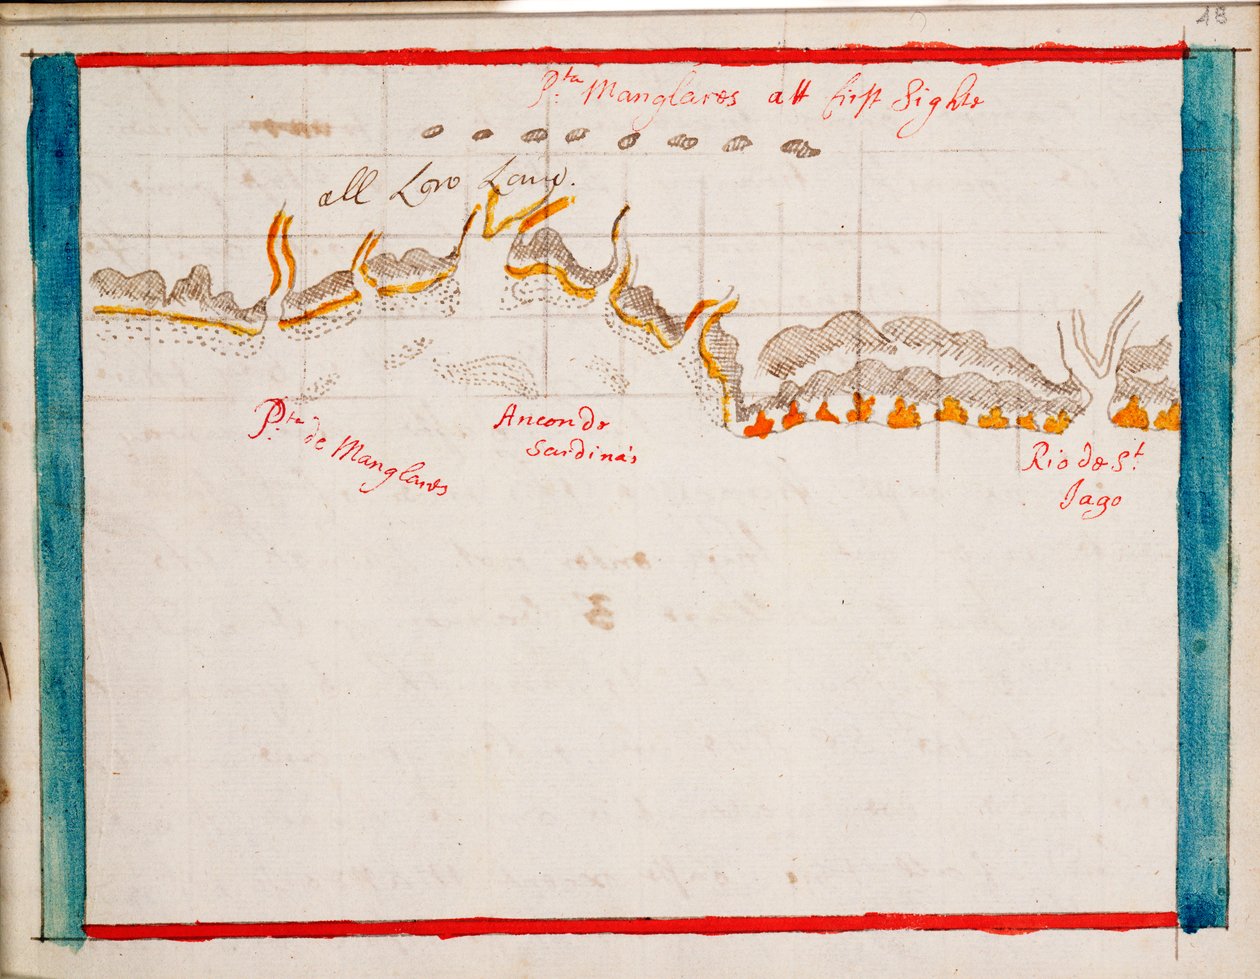 18
P.ta Manglares att first Sighte
all Low Land.
P.ta de Manglares
Ancon de
Sardina's
Rio de S.t
Jago
3